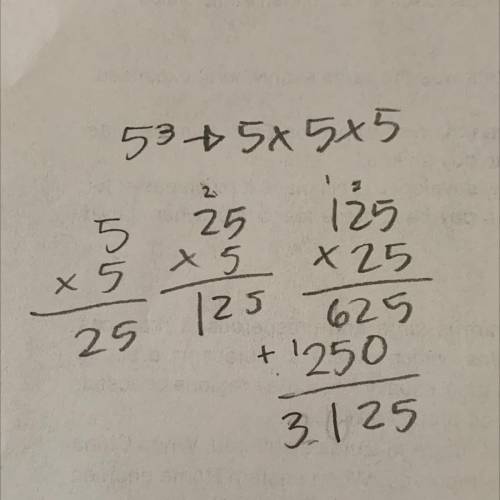 5³→5x5x5
5
x 5
25
2
25
x 5
125
1 2
125
x 25
625
+ 1 250
3.125